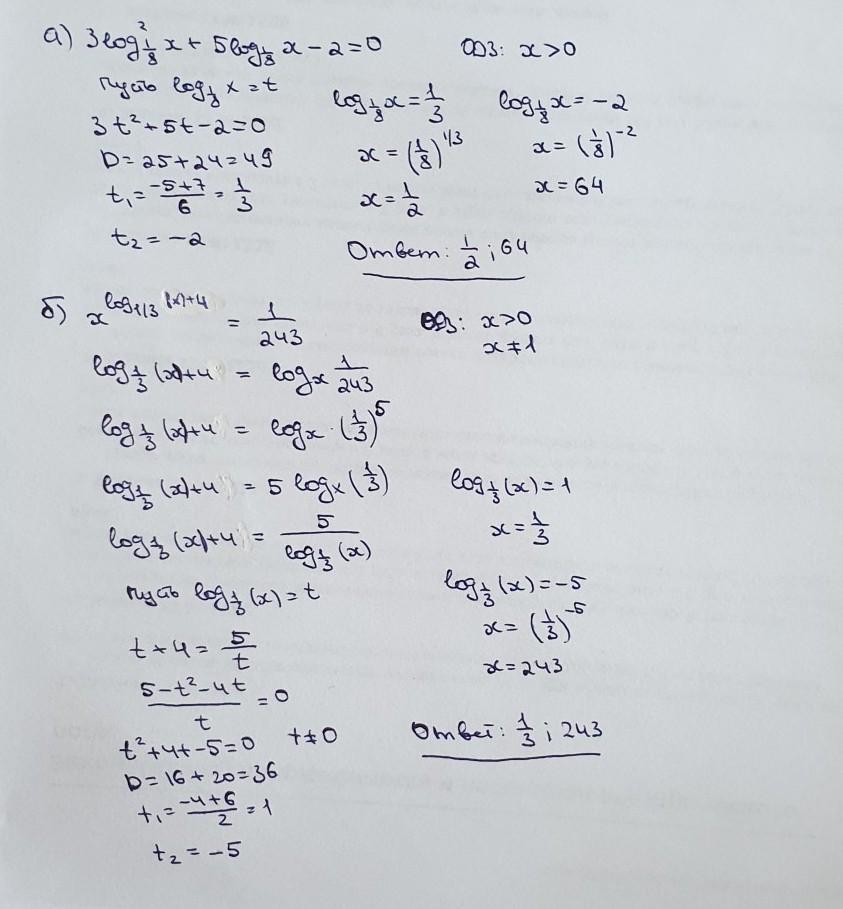 а) 3log²_{1/8} x + 5log_{1/8} x − 2 = 0 ОДЗ: x>0
Пусть log_{1/8} x = t
3t² + 5t − 2 = 0
D = 25 + 24 = 49
t₁ = (−5+7)/6 = 1/3
t₂ = −2
log_{1/8} x = 1/3
x = (1/8)^{1/3}
x = 1/2
log_{1/8} x = −2
x = (1/8)^{−2}
x = 64
Ответ: 1/2 ; 64
б) x^{log_{1/3}(x)+4} = 1/243 ОДЗ: x>0
x ≠ 1
log_{1/3}(x)+4 = log_x 1/243
log_{1/3}(x)+4 = log_x · (1/3)^5
log_{1/3}(x)+4 = 5 log_x (1/3)
log_{1/3}(x)+4 = 5/log_{1/3}(x)
Пусть log_{1/3}(x) = t
t + 4 = 5/t
(5 − t² − 4t)/t = 0
t² + 4t − 5 = 0 t ≠ 0
D = 16 + 20 = 36
t₁ = (−4+6)/2 = 1
t₂ = −5
log_{1/3}(x) = 1
x = 1/3
log_{1/3}(x) = −5
x = (1/3)^{−5}
x = 243
Ответ: 1/3 ; 243